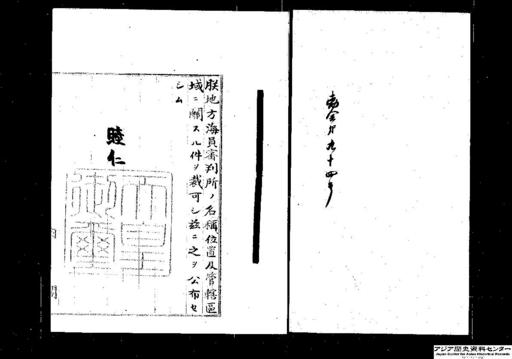 勅令第九十四号
朕地方海員審判所ノ名稱位置及管轄區
域ニ關スル件ヲ裁可シ茲ニ之ヲ公布セ
シム
睦仁
内閣
アジア歴史資料センター
Japan Center for Asian Historical Records